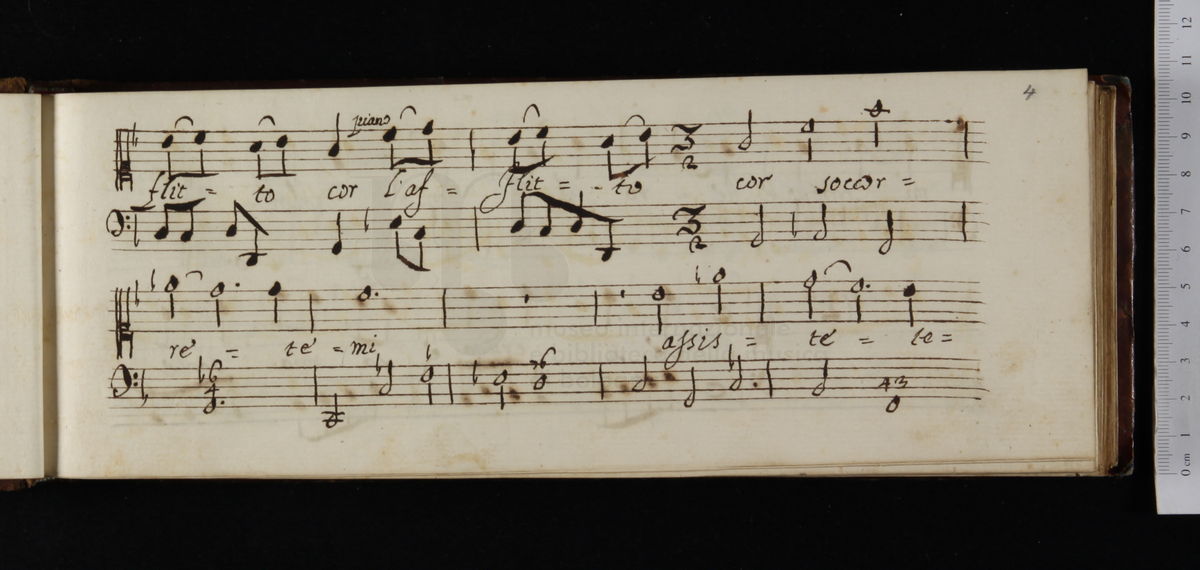 4
piano
flit = to cor l'af = flit = - to cor soccor =
3 2
3 2
re = te = mi assis = te = te =
6 4 6 4 3
museo internazionale
biblioteca
0 cm 1 2 3 4 5 6 7 8 9 10 11 12